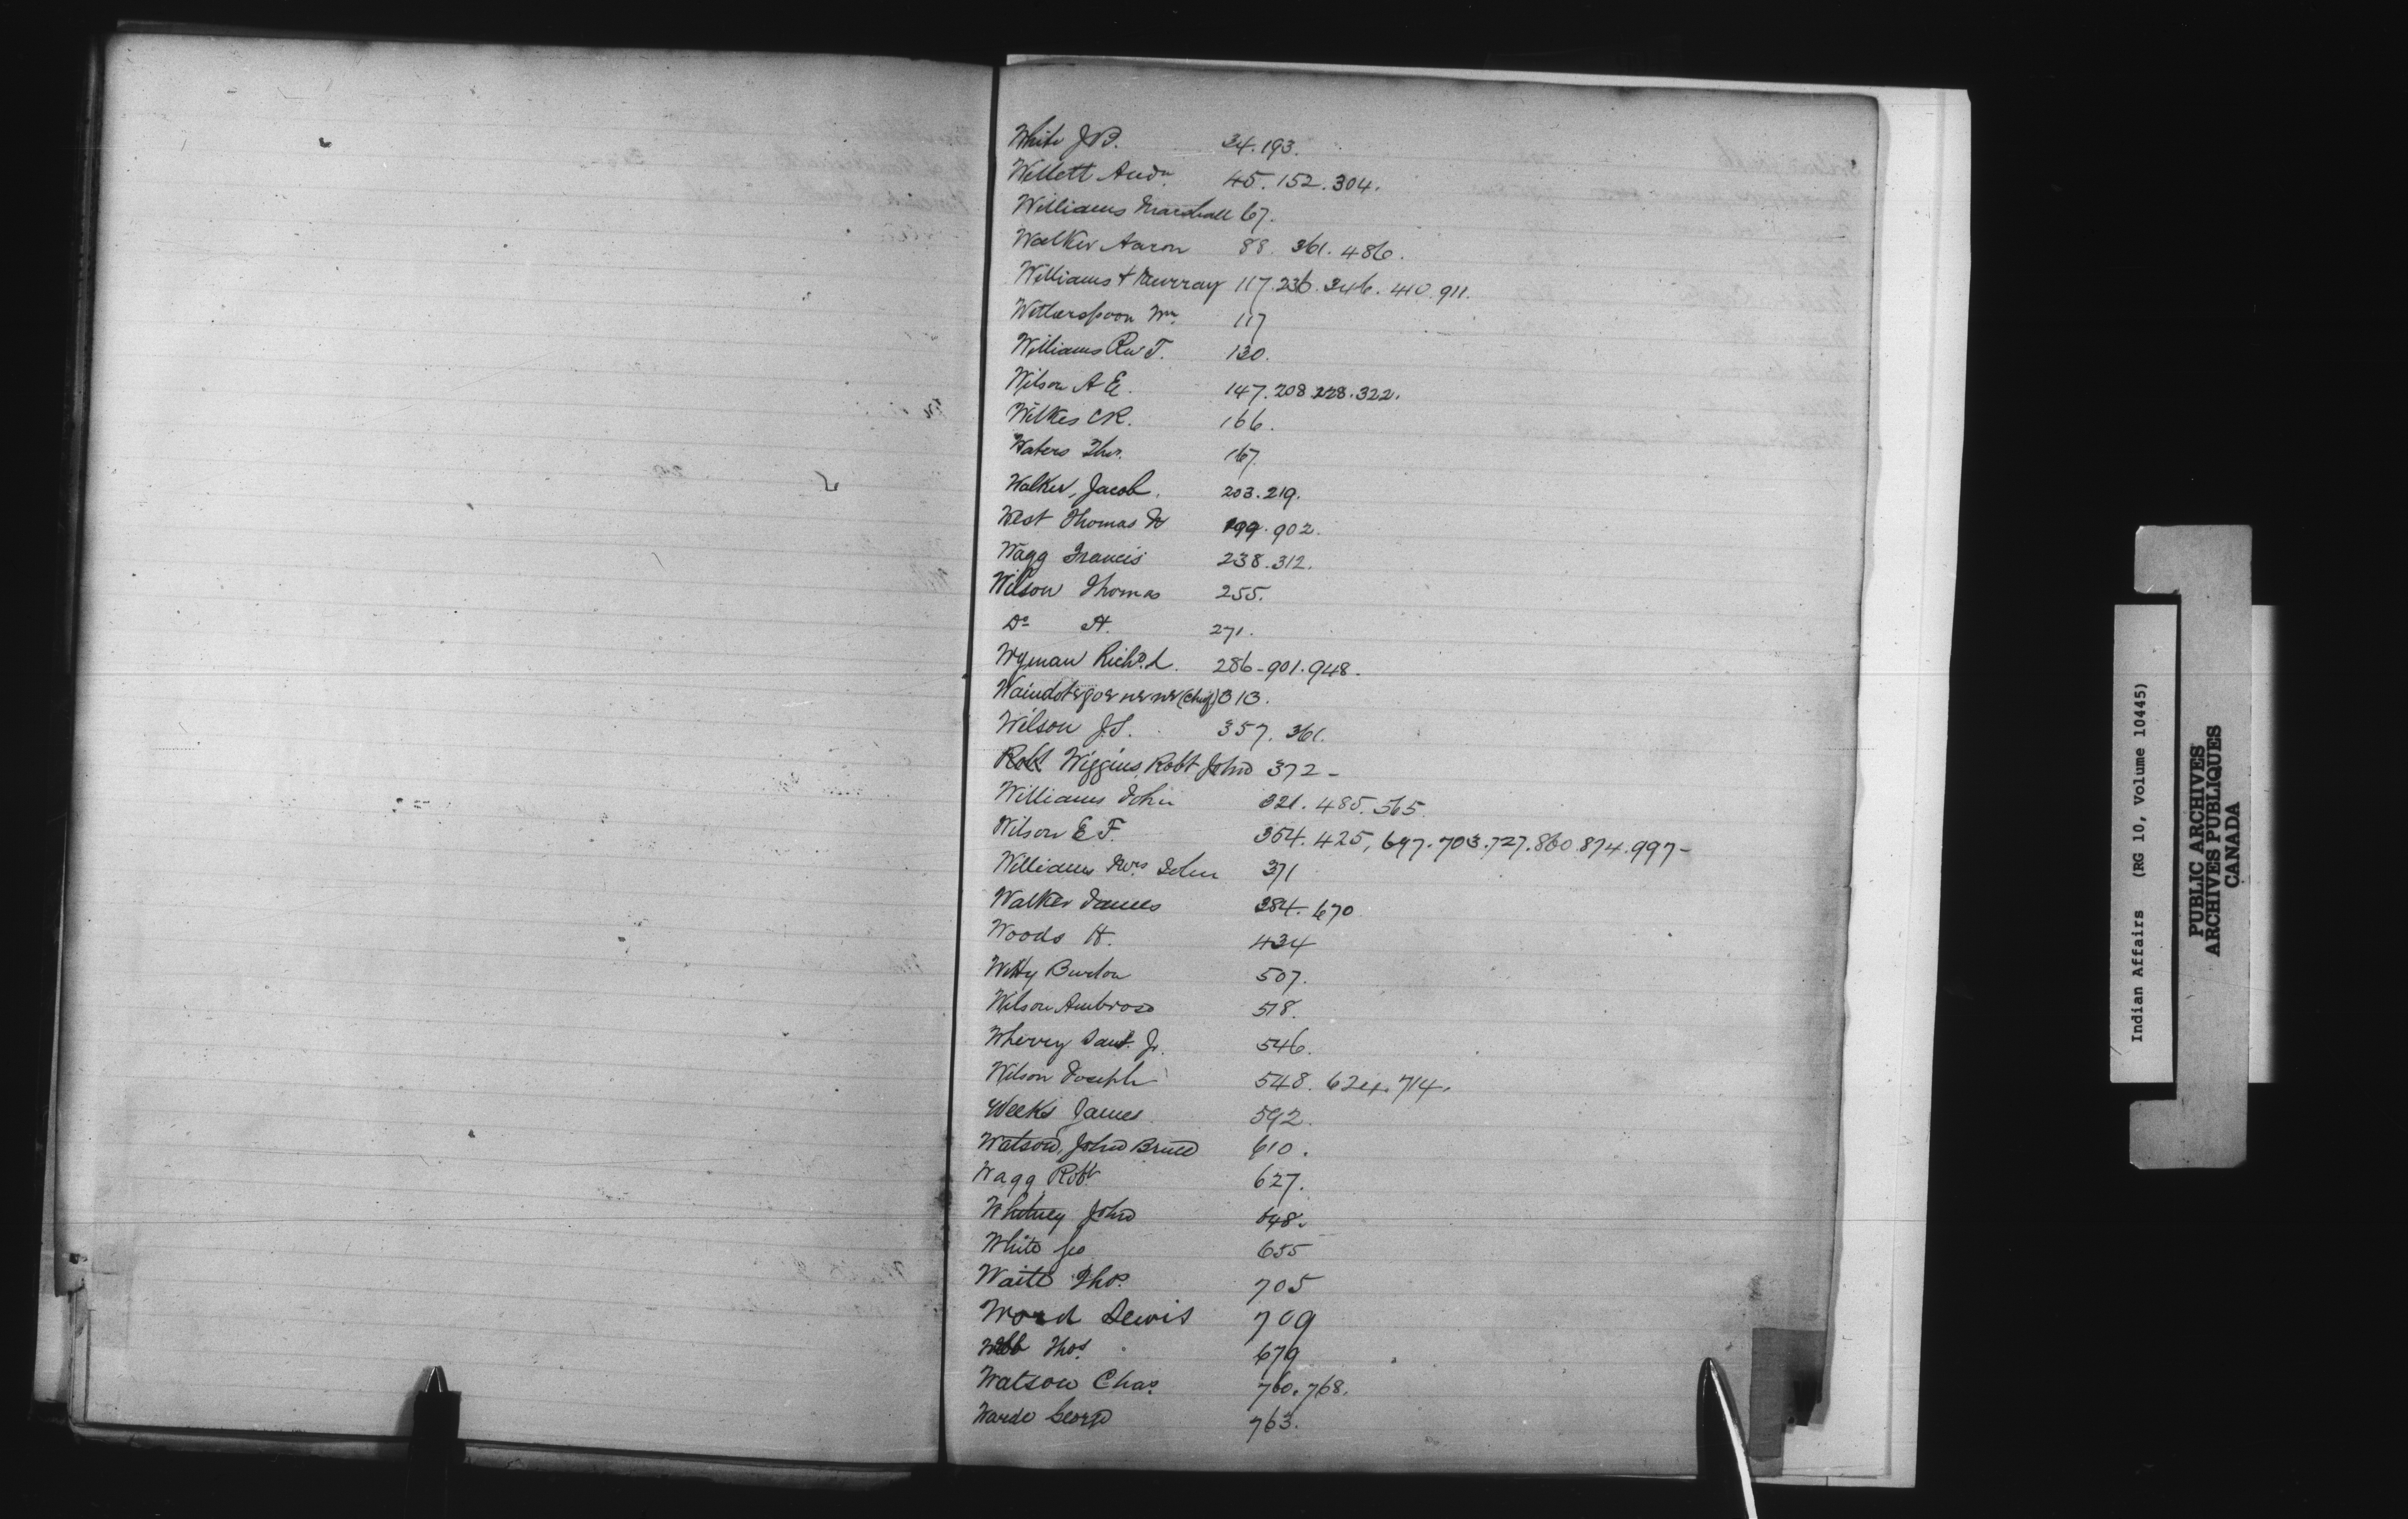 White J B. 34. 193.
Willett Andw 45. 152. 304.
Williams Marshall 67.
Walker Aaron 88. 361. 486.
Williams & Murray 117. 236. 346. 410. 911.
Wetherspoon Wm. 117
Williams Rev T. 130.
Wilson A E. 147. 208 228. 322.
Wilkes C R. 166.
Waters Thos. 167.
Walker, Jacob. 203. 219.
West Thomas W 199. 902.
Wagg Francis 238. 312.
Wilson Thomas 255.
Do H. 271.
Wyman Richd. L. 286-901. 948.
(Chief) 313.
Wilson J.S. 357. 361.
Robt Wiggins Robt John 372 -
Williams John 321. 485. 565.
Wilson E F. 354. 425, 697. 703. 727. 860. 874. 997-
Williams Mrs John 371
Walker James 384. 670
Woods H. 434
Witty Burton 507.
Wilson Ambrose 518.
Wherry Saml. Jr. 546.
Wilson Joseph 548. 624. 714.
Weeks James 592.
Watson, John Bruce 610.
Wagg Robt 627.
Whitney John 648.
White Geo 655
Waite Thos. 705
Word Lewis 709
Webb Thos. 679
Watson Chas. 760. 768.
Warde George 763.
Indian Affairs (RG 10, Volume 10445)
PUBLIC ARCHIVES
ARCHIVES PUBLIQUES
CANADA